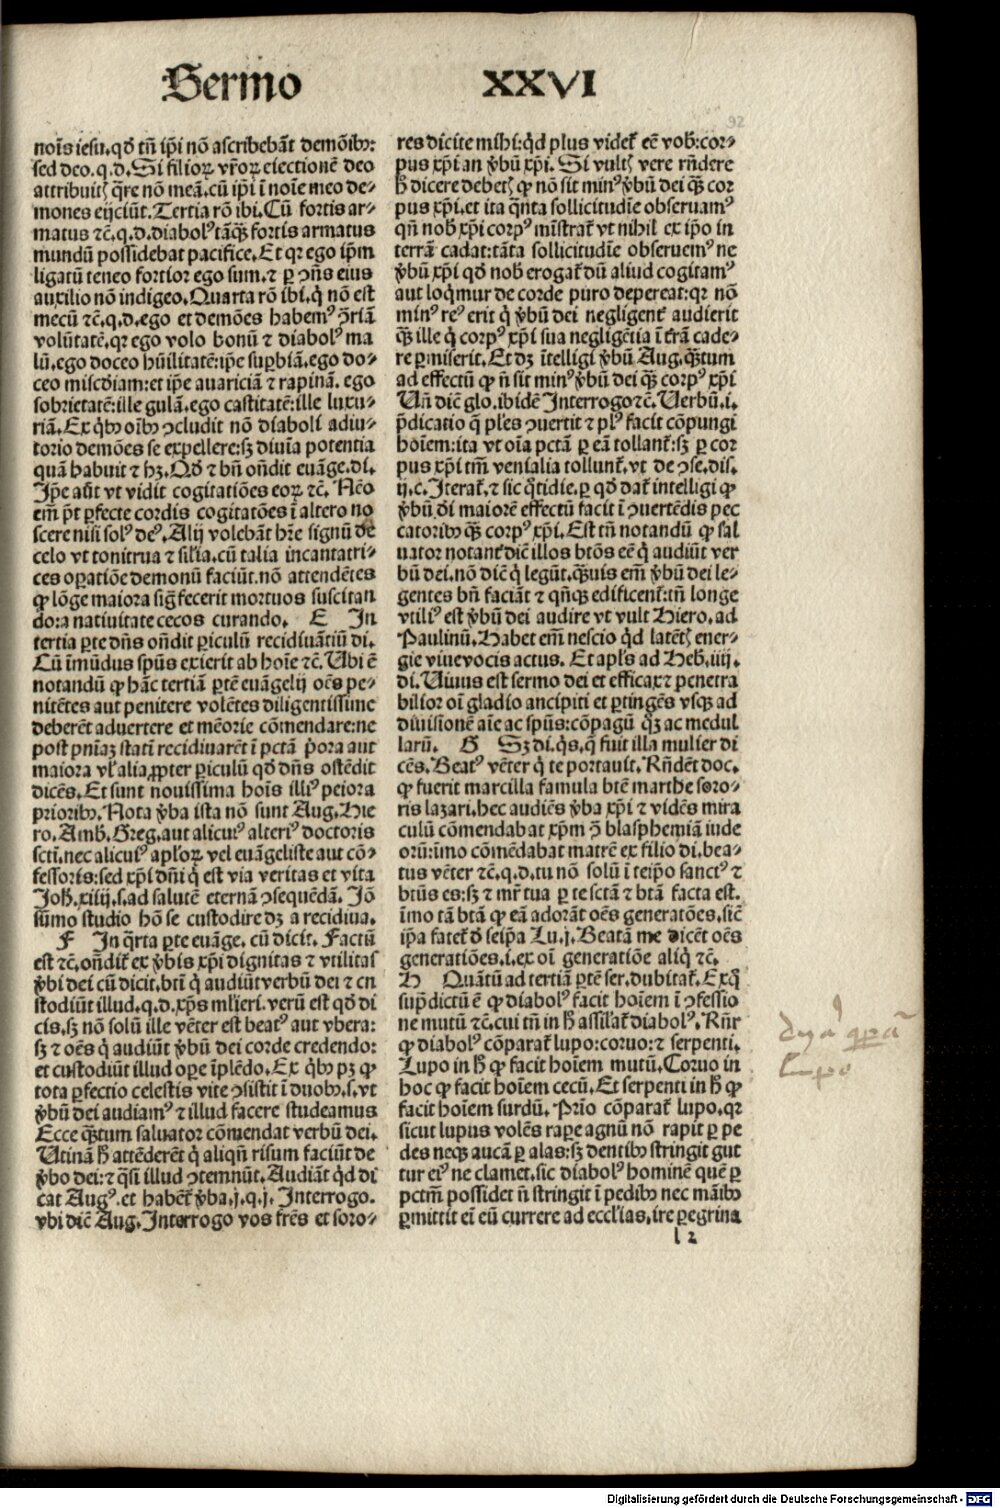 Sermo XXVI
92
noı̄s iesu, qð tñ ip̄i nō ascribebāt demōibꝰ:
sed deo. q.d. Si filioꝝ vr̄oꝝ eiectionē deo
attribuitꝭ q̄re nō meā, cū ip̄i ī noı̄e meo de⸗
mones eijciūt. Tertia rō ibi. Cū fortis ar⸗
matus ⁊c̄. q.d. diabolꝰ tāq̄ꝫ fortis armatus
mundū possidebat pacifice. Et qꝛ ego ip̄m
ligatū teneo fortior ego sum. ⁊ ꝑ ↄ̄ns eius
auxilio nō indigeo. Quarta rō ibi. q̇ nō est
mecū ⁊c̄. q.d. ego et demōes habemꝰ ↄ̄riā
volūtatē, qꝛ ego volo bonū ⁊ diabolꝰ ma
lū, ego doceo hūilitatē: ip̄e suꝑbiā. ego do⸗
ceo misc̄diam: et ip̄e auariciā ⁊ rapinā. ego
sobrietatē: ille gulā. ego castitatē: ille luxu⸗
riā. Ex q̇bꝰ oı̄bꝰ ↄcludit nō diaboli adiu⸗
torio demōes se expellere: sꝫ diuīa potentia
quā habuit ⁊ hꝫ. Qð ⁊ bn̄ on̄dit euāge. di.
Ip̄e aūt vt vidit cogitatiōes eoꝝ ⁊c̄. Nēo
em̄ p̄t ꝑfecte cordis cogitatōes ī altero no
scere nisi solꝰ deꝰ. Alij volebāt hr̄e signū de
celo vt tonitrua ⁊ sil̄ia. cū talia incantatri⸗
ces oꝑatiōe demonū faciūt. nō attendētes
ꝙ lōge maiora sig̅ fecerit mortuos suscitan
do: a natiuitate cecos curando. E In
tertia ꝑte dn̄s on̄dit ꝑiculū recidiuātiū di.
Cū īmūdus spūs exierit ab hoı̄e ⁊c̄. Ubi ē
notandū ꝙ hāc tertiā ꝑtē euāgelij oēs pe⸗
nitētes aut penitere volētes diligentissime
deberēt aduertere et mēorie cōmendare: ne
post pn̄iaꝫ statī recidiuarēt ī pctā p̄ora aut
maiora vl̓ alia, ꝓpter ꝑiculū qð dn̄s ostēdit
dicēs. Et sunt nouissima hoı̄s illiꝰ peiora
prioribꝰ. Nota v̄ba ista nō sunt Aug. Hie
ro. Amb̄. Greg. aut alicuiꝰ alteriꝰ doctoris
sctī. nec alicuiꝰ apl̓oꝝ vel euāgeliste aut cō⸗
fessoris: sed xp̄i dn̄i q̇ est via veritas et vita
Joh̄. xiiij. s. ad salutē eternā ↄsequēdā. Jō
sūmo studio hō se custodire dꝫ a recidiua.
F In q̄rta ꝑte euāge. cū dicit. Factū
est ⁊c̄. on̄dit̄ ex v̄bis xp̄i dignitas ⁊ vtilitas
v̄bi dei cū dicit. btī q̇ audiūt verbū dei ⁊ cu
stodiūt illud. q.d. xp̄s ml̓ieri. verū est qð di
cis, sꝫ nō solū ille vēter est beatꝰ aut vbera:
sꝫ ⁊ oēs q̇ audiūt v̄bū dei corde credendo:
et custodiūt illud oꝑe īplēdo. Ex q̇bꝰ pꝫ ꝙ
tota ꝑfectio celestis vite ↄsistit ī duobꝰ. s. vt
v̄bū dei audiamꝰ ⁊ illud facere studeamus
Ecce q̄ꝫtum saluator cōmendat verbū dei.
Utinā h̄ attēderēt q̇ aliqn̄ risum faciūt de
v̄bo dei: ⁊ q̄si illud ↄtemnūt. Audiāt q̇d di
cat Augꝰ. et habēt̄ v̄ba. j. q. j. Interrogo.
vbi dic̄ Aug. Interrogo vos fr̄es et soro⸗
res dicite mihi: q̇d plus videt̄ eē vob̄: cor⸗
pus xp̄i an v̄bū xp̄i. Si vultꝭ vere rn̄dere
h̄ dicere debetꝭ ꝙ nō sit minꝰ v̄bū dei q̄ꝫ cor
pus xp̄i. et ita q̄nta sollicitudīe obseruamꝰ
qn̄ nob̄ xp̄i corpꝰ mı̄strat̄ vt nihil ex ip̄o in
terrā cadat: tāta sollicitudīe obseruemꝰ ne
v̄bū xp̄i qð nob̄ erogat̄ dū aliud cogitamꝰ
aut loq̇mur de corde puro depereat: qꝛ nō
minꝰ reꝰ erit q̇ v̄bū dei negligent̄ audierit
q̄ꝫ ille q̇ corpꝰ xp̄i sua negligētia ī t̄rā cade⸗
re ꝑmiserit. Et dꝫ ītelligi v̄bū Aug. q̄ꝫtum
ad effectū ꝙ n̄ sit minꝰ v̄bū dei q̄ꝫ corpꝰ xp̄i
Un̄ dic̄ glo. ibidē Interrogo ⁊c̄. Verbū. i.
p̄dicatio q̄ pl̓es ↄuertit ⁊ plꝰ facit cōpungi
hoı̄em: ita vt oı̄a pctā ꝑ eā tollant̄: sꝫ ꝑ cor
pus xp̄i tm̄ venialia tollunt̄. vt de ↄse. dis.
ij. c. Iterat̄. ⁊ sic q̇tidie. ꝑ qð dat̄ intelligi ꝙ
v̄bū dei maiorē effectū facit ī ↄuertēdis pec
catoribꝰ q̄ꝫ corpꝰ xp̄i. Est tn̄ notandū ꝙ sal
uator notant̄ dic̄ illos btōs eē q̇ audiūt ver
bū dei. nō dic̄ q̇ legūt. q̄ꝫuis em̄ v̄bū dei le⸗
gentes bn̄ faciāt ⁊ qn̄qꝫ edificent̄: tn̄ longe
vtiliꝰ est v̄bū dei audire vt vult Hiero. ad
Paulinū. Habet em̄ nescio q̇d latētꝭ ener⸗
gie viue vocis actus. Et apl̓s ad Heb̄. iiij.
di. Uiuus est sermo dei et efficax ⁊ penetra
bilior oı̄ gladio ancipiti et ꝑtingēs vsqꝫ ad
diuisionē aı̄e ac spūs: cōpagū q̄ꝫ ac medul
larū. G Sꝫ di. q̇s. q̄ fuit illa mulier di
cēs. Beatꝰ vēter q̇ te portauit. Rn̄dēt doc.
ꝙ fuerit marcilla famula btē marthe soro⸗
ris lazari. hec audiēs v̄ba xp̄i ⁊ vidēs mira
culū cōmendabat xp̄m ↄ̄ blasphemiā iude
orū: īmo cōmēdabat matrē ex filio di. bea⸗
tus vēter ⁊c̄. q.d. tu nō solū ī teip̄o sanctꝰ ⁊
btūs es: sꝫ ⁊ mr̄ tua ꝑ te sctā ⁊ btā facta est.
īmo tā btā ꝙ eā adorāt oēs generatōes. sic̄
ip̄a fatet̄ ð seip̄a Lu. j. Beatā me dicēt oēs
generatiōes. i. ex oı̄ generatiōe aliq̇ ⁊c̄.
H Quātū ad tertiā ꝑtē ser. dubitat̄. Ex q̄
sup̄dictū ē ꝙ diabolꝰ facit hoı̄em ī ↄfessio
ne mutū ⁊c̄. cui tn̄ in h̄ assil̓at̄ diabolꝰ. Rn̄r
ꝙ diabolꝰ cōparat̄ lupo: coruo: ⁊ serpenti.
Lupo in h̄ ꝙ facit hoı̄em mutū. Coruo in
hoc ꝙ facit hoı̄em cecū. Et serpenti in h̄ ꝙ
facit hoı̄em surdū. Prı̄o cōparat̄ lupo. qꝛ
sicut lupus volēs raꝑe agnū nō rapit ꝑ pe
des neqꝫ aucā ꝑ alas: sꝫ dentibꝰ stringit gut
tur eiꝰ ne clamet, sic diabolꝰ hominē quē ꝑ
pctm̄ possidet n̄ stringit ī pedibꝰ nec māibꝰ
ꝑmittit ei eū currere ad eccl̓ias, ire ꝑegrina
l 2
Digitalisierung gefördert durch die Deutsche Forschungsgemeinschaft - DFG